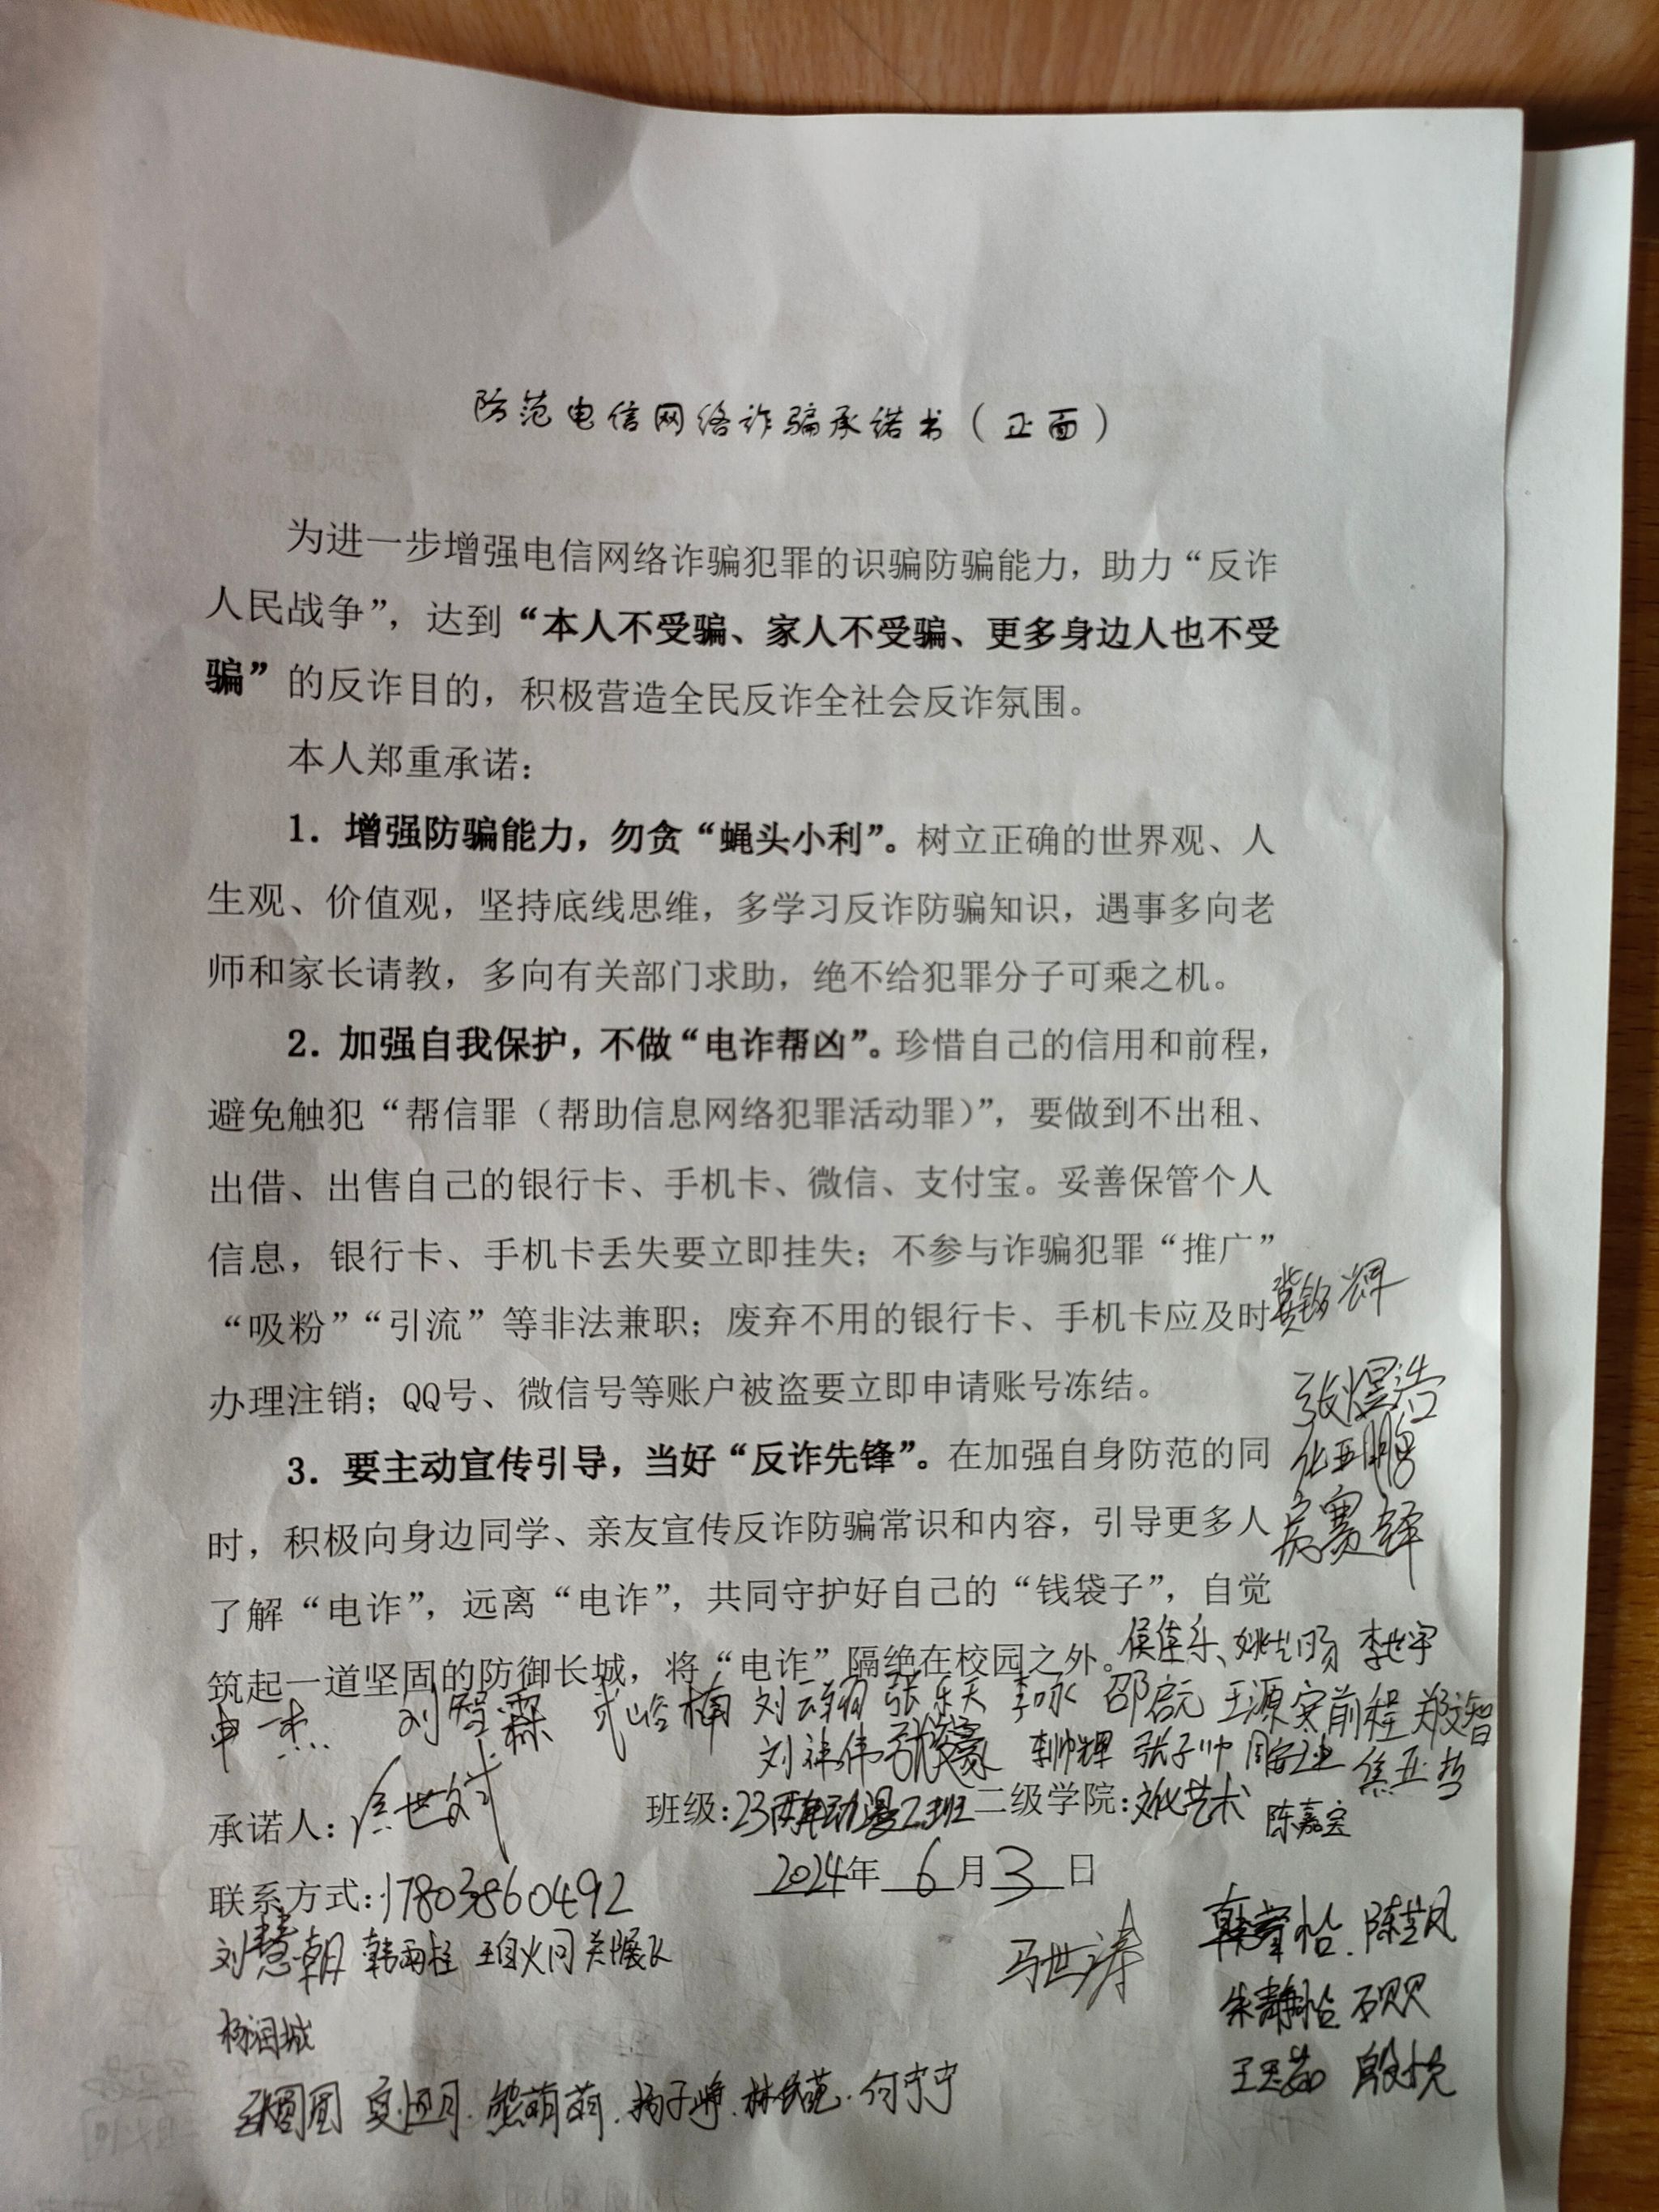 防范电信网络诈骗承诺书（正面）
为进一步增强电信网络诈骗犯罪的识骗防骗能力，助力“反诈
人民战争”，达到“本人不受骗、家人不受骗、更多身边人也不受
骗”的反诈目的，积极营造全民反诈全社会反诈氛围。
本人郑重承诺：
1. 增强防骗能力，勿贪“蝇头小利”。树立正确的世界观、人
生观、价值观，坚持底线思维，多学习反诈防骗知识，遇事多向老
师和家长请教，多向有关部门求助，绝不给犯罪分子可乘之机。
2. 加强自我保护，不做“电诈帮凶”。珍惜自己的信用和前程，
避免触犯“帮信罪（帮助信息网络犯罪活动罪）”，要做到不出租、
出借、出售自己的银行卡、手机卡、微信、支付宝。妥善保管个人
信息，银行卡、手机卡丢失要立即挂失；不参与诈骗犯罪“推广”
“吸粉”“引流”等非法兼职；废弃不用的银行卡、手机卡应及时
办理注销；QQ号、微信号等账户被盗要立即申请账号冻结。
张煜浩
3. 要主动宣传引导，当好“反诈先锋”。在加强自身防范的同
时，积极向身边同学、亲友宣传反诈防骗常识和内容，引导更多人
了解“电诈”，远离“电诈”，共同守护好自己的“钱袋子”，自觉
筑起一道坚固的防御长城，将“电诈”隔绝在校园之外。
侯佳乐、李世宇
申杰 刘智霖 武峪楠 刘云翔 张乐天 李咏 邵启元 王源 安前程 郑文智
刘祎伟 李帅辉 张子帅 焦亚哲
承诺人： 班级： 二级学院：文化艺术 陈嘉宝
2024年 6 月 3 日
联系方式：17803860492
刘慧朝 韩雨柱
马世涛
朱静怡 石贝贝
杨润城
王玉茹 殷悦
熊萌萌. 付宁宁